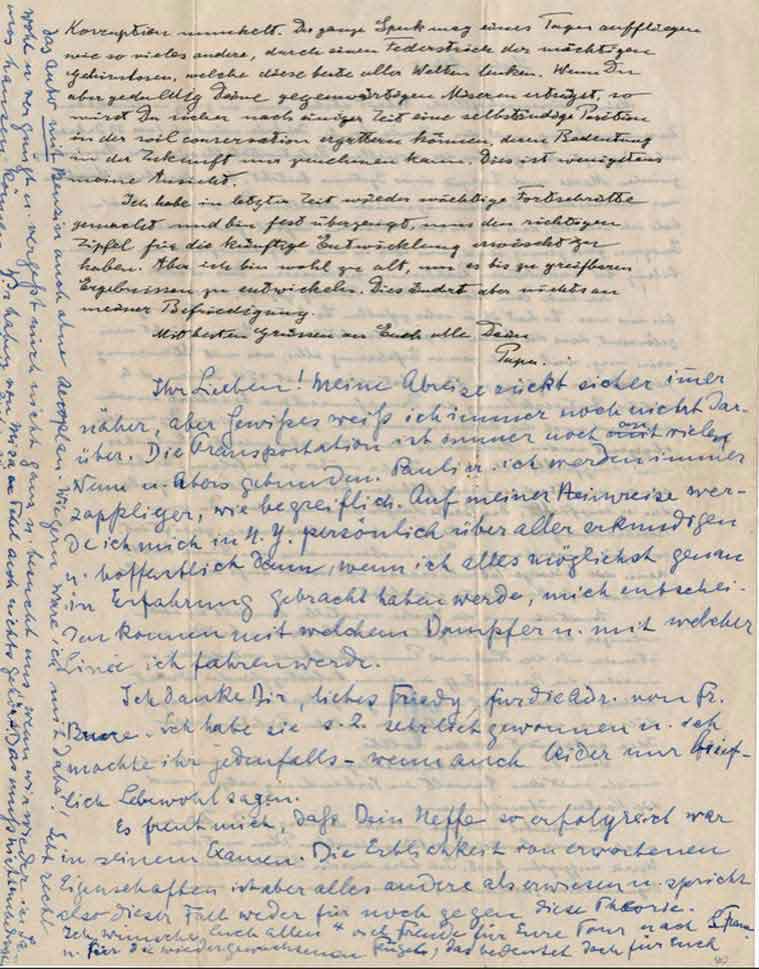 Korruption munkelt. Der ganze Spuk mag eines Tages auffliegen
wie so vieles andere, durch einen Federstrich der mächtigen
welche diese beste aller Welten lenken. Wenn Du
aber geduldig Deine gegenwärtigen Miseren erträgst, so
wirst Du sicher nach einiger Zeit eine selbständige Position
in der soil conservation ergattern können, deren Bedeutung
in der Zukunft nur zunehmen kann. Dies ist wenigstens
meine Ansicht.
Ich habe in letzter Zeit wieder mächtige Fortschritte
gemacht und bin fest überzeugt, nun den richtigen
Zipfel für die künftige Entwicklung erwischt zu
haben. Aber ich bin wohl zu alt, um es bis zu greifbaren
Ergebnissen zu entwickeln. Dies ändert aber nichts an
meiner Befriedigung.
Mit besten Grüssen an Euch alle Dein
Papa.
Ihr Lieben! Meine Abreise rückt sicher immer
näher, aber Gewißes weiß ich immer noch nicht dar-
über. Die Transportation ist immer noch an viele
Wenn u. Abers gebunden. Pauli u. ich werden immer
zappliger, wie begreiflich. Auf meiner Heimreise wer-
de ich mich in N.Y. persönlich über alles erkundigen
u. hoffentlich dann, wenn ich alles möglichst genau
in Erfahrung gebracht haben werde, mich entschei-
den können mit welchem Dampfer u. mit welcher
Linie ich fahren werde.
Ich danke Dir, liebes Friedy, für die Adr. von Fr.
Ich habe sie s. Z. sehr lieb gewonnen u. ich
möchte ihr jedenfalls - wenn auch leider nur brief-
lich Lebewohl sagen.
Es freut mich, daß Dein Neffe so erfolgreich war
in seinem Examen. Die Erblichkeit von erworbenen
Eigenschaften ist aber alles andere als erwiesen u. spricht
also dieser Fall weder für noch gegen diese Theorie.
Ich wünsche Euch allen 4 viel Freude für Eure Tour nach S. Franc.
u. für die wiedergewachsenen Flügel, das bedeutet doch für Euch
das Auto mit Benzin auch ohne Aeroplan. Wie gern wäre ich mit dabei! Lebt recht
wohl u. vergnügt u. vergeßt mich nicht ganz u. besucht uns wenn wir wieder in
hausen können. Wir haben von